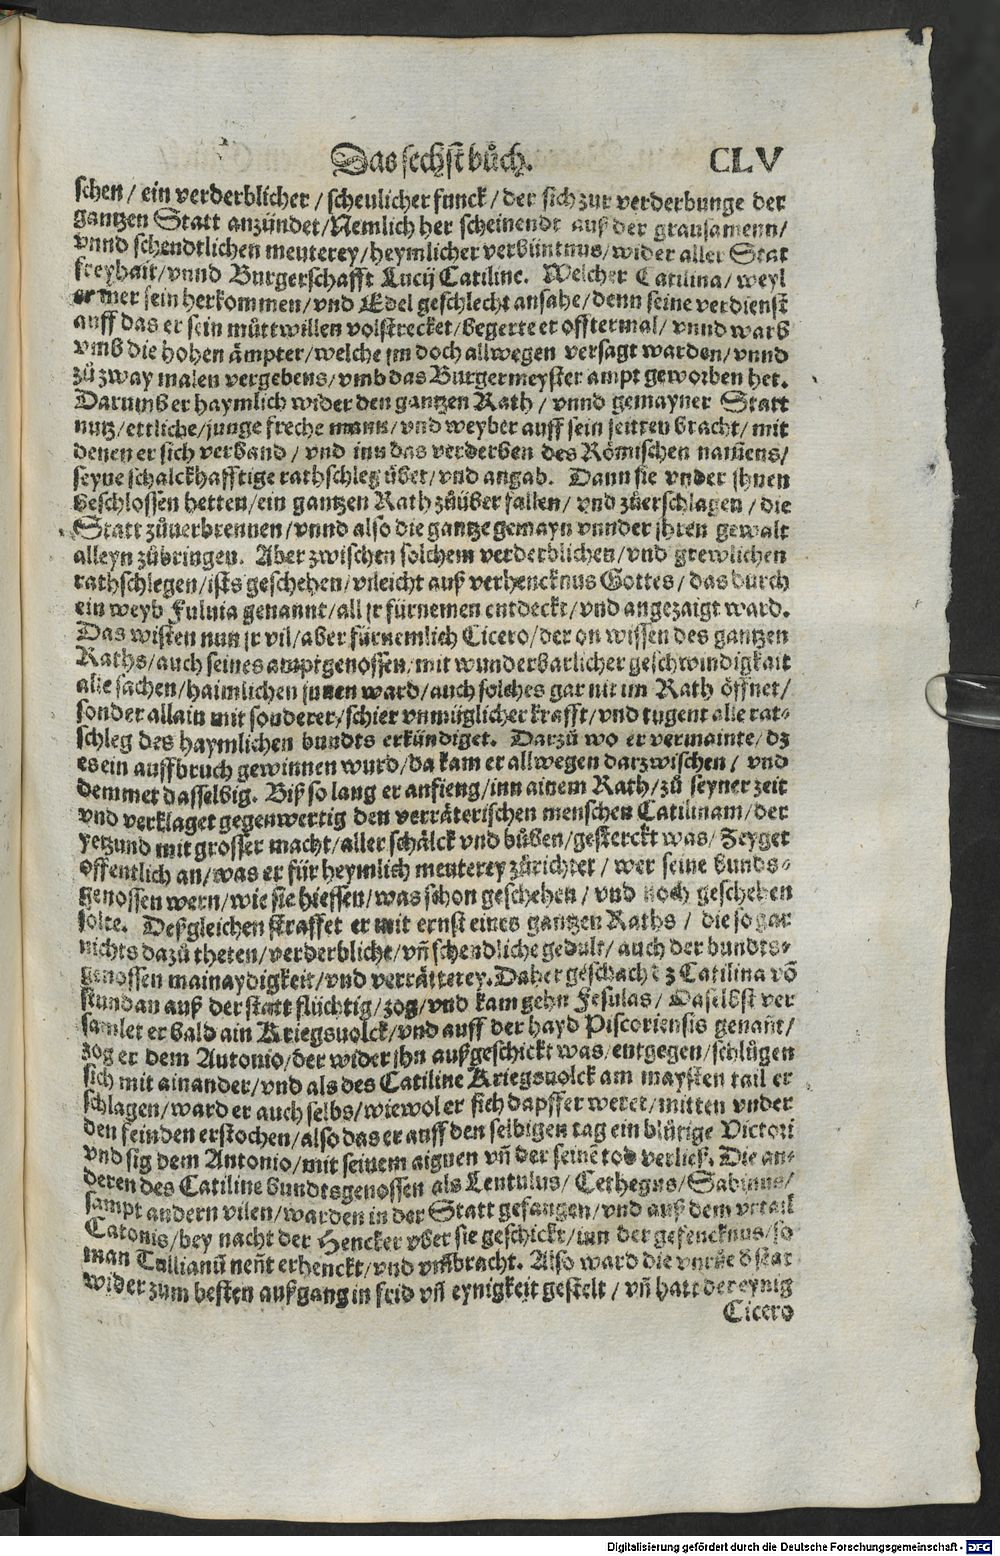 Das sechst bůch. CLV
schen / ein verderblicher / scheulicher funck / der sich zur verderbunge der
gantzen Statt anzündet / Nemlich her scheinendt auß der grausamenn /
vnnd schendtlichen meuterey / heymlicher verbüntnus / wider aller Stat
freyhait / vnnd Burgerschafft Lucij Catiline. Welcher Catilina / weyl
er mer sein herkommen / vnd Edel geschlecht ansahe / denn seine verdienst
auff das er sein můttwillen volstrecket / begerte er offtermal / vnnd warb
vmb die hohen ämpter / welche jm doch allwegen versagt warden / vnnd
zů zway malen vergebens / vmb das Burgermeyster ampt geworben het.
Darumb er haymlich wider den gantzen Rath / vnnd gemayner Statt
nutz / ettliche / junge freche mann / vnd weyber auff sein seitten bracht / mit
denen er sich verband / vnd inn das verderben des Römischen namens /
seyne schalckhafftige rathschleg übet / vnd angab. Dann sie vnder jhnen
beschlossen hetten / ein gantzen Rath zůüber fallen / vnd zůerschlagen / die
Statt zůuerbrennen / vnnd also die gantze gemayn vnnder jhren gewalt
alleyn zůbringen. Aber zwischen solchem verderblichen / vnd grewlichen
rathschlegen / ists geschehen / vileicht auß verhencknus Gottes / das durch
ein weyb Fuluia genannt / all jr fürnemen entdeckt / vnd angezaigt ward.
Das wisten nun jr vil / aber fürnemlich Cicero / der on wissen des gantzen
Raths / auch seines amptgenossen / mit wunderbarlicher geschwindigkait
alle sachen / haimlichen jnnen ward / auch solches gar nit im Rath öffnet /
sonder allain mit sonderer / schier vnmüglicher krafft / vnd tugent alle rat⸗
schleg des haymlichen bundts erkündiget. Darzů wo er vermainte / dz
es ein auffbruch gewinnen wurd / da kam er allwegen darzwischen / vnd
demmet dasselbig. Biß so lang er anfieng / inn ainem Rath / zů seyner zeit
vnd verklaget gegenwertig den verräterischen menschen Catilinam / der
yetzund mit grosser macht / aller schälck vnd bůben / gesterckt was / Zeyget
offentlich an / was er für heymlich meuterey zůrichtet / wer seine bunds⸗
genossen wern / wie sie hiessen / was schon geschehen / vnd noch geschehen
solte. Deßgleichen straffet er mit ernst eines gantzen Raths / die so gar
nichts dazů theten / verderblicht / vñ schendliche gedult / auch der bundts⸗
genossen mainaydigkeit / vnd verrätterey. Daher geschacht z Catilina võ
stundan auß der statt flüchtig / zog / vnd kam gehn Fesulas / Daselbst ver
samlet er bald ain Kriegsuolck / vnd auff der hayd Piscoriensis genañt /
zog er dem Antonio / der wider jhn außgeschickt was / entgegen / schlůgen
sich mit ainander / vnd als des Catiline Kriegsuolck am maysten tail er
schlagen / ward er auch selbs / wiewol er sich dapffer weret / mitten vnder
den feinden erstochen / also das er auff den selbigen tag ein blůtige Victori
vnd sig dem Antonio / mit seinem aignen vñ der seinẽ tod verließ. Die an⸗
deren des Catiline bundtsgenossen als Lentulus / Cethegus / Sabinus /
sampt andern vilen / warden in der Statt gefangen / vnd auß dem vrtail
Catonis / bey nacht der Hencker vber sie geschickt / inn der gefencknus / so
man Tullianũ neñt erhenckt / vnd vmbbracht. Also ward die vnrůe d stat
wider zum besten außgang in frid vñ eynigkeit gestelt / vñ hatt der eynig
Cicero
Digitalisierung gefördert durch die Deutsche Forschungsgemeinschaft - DFG